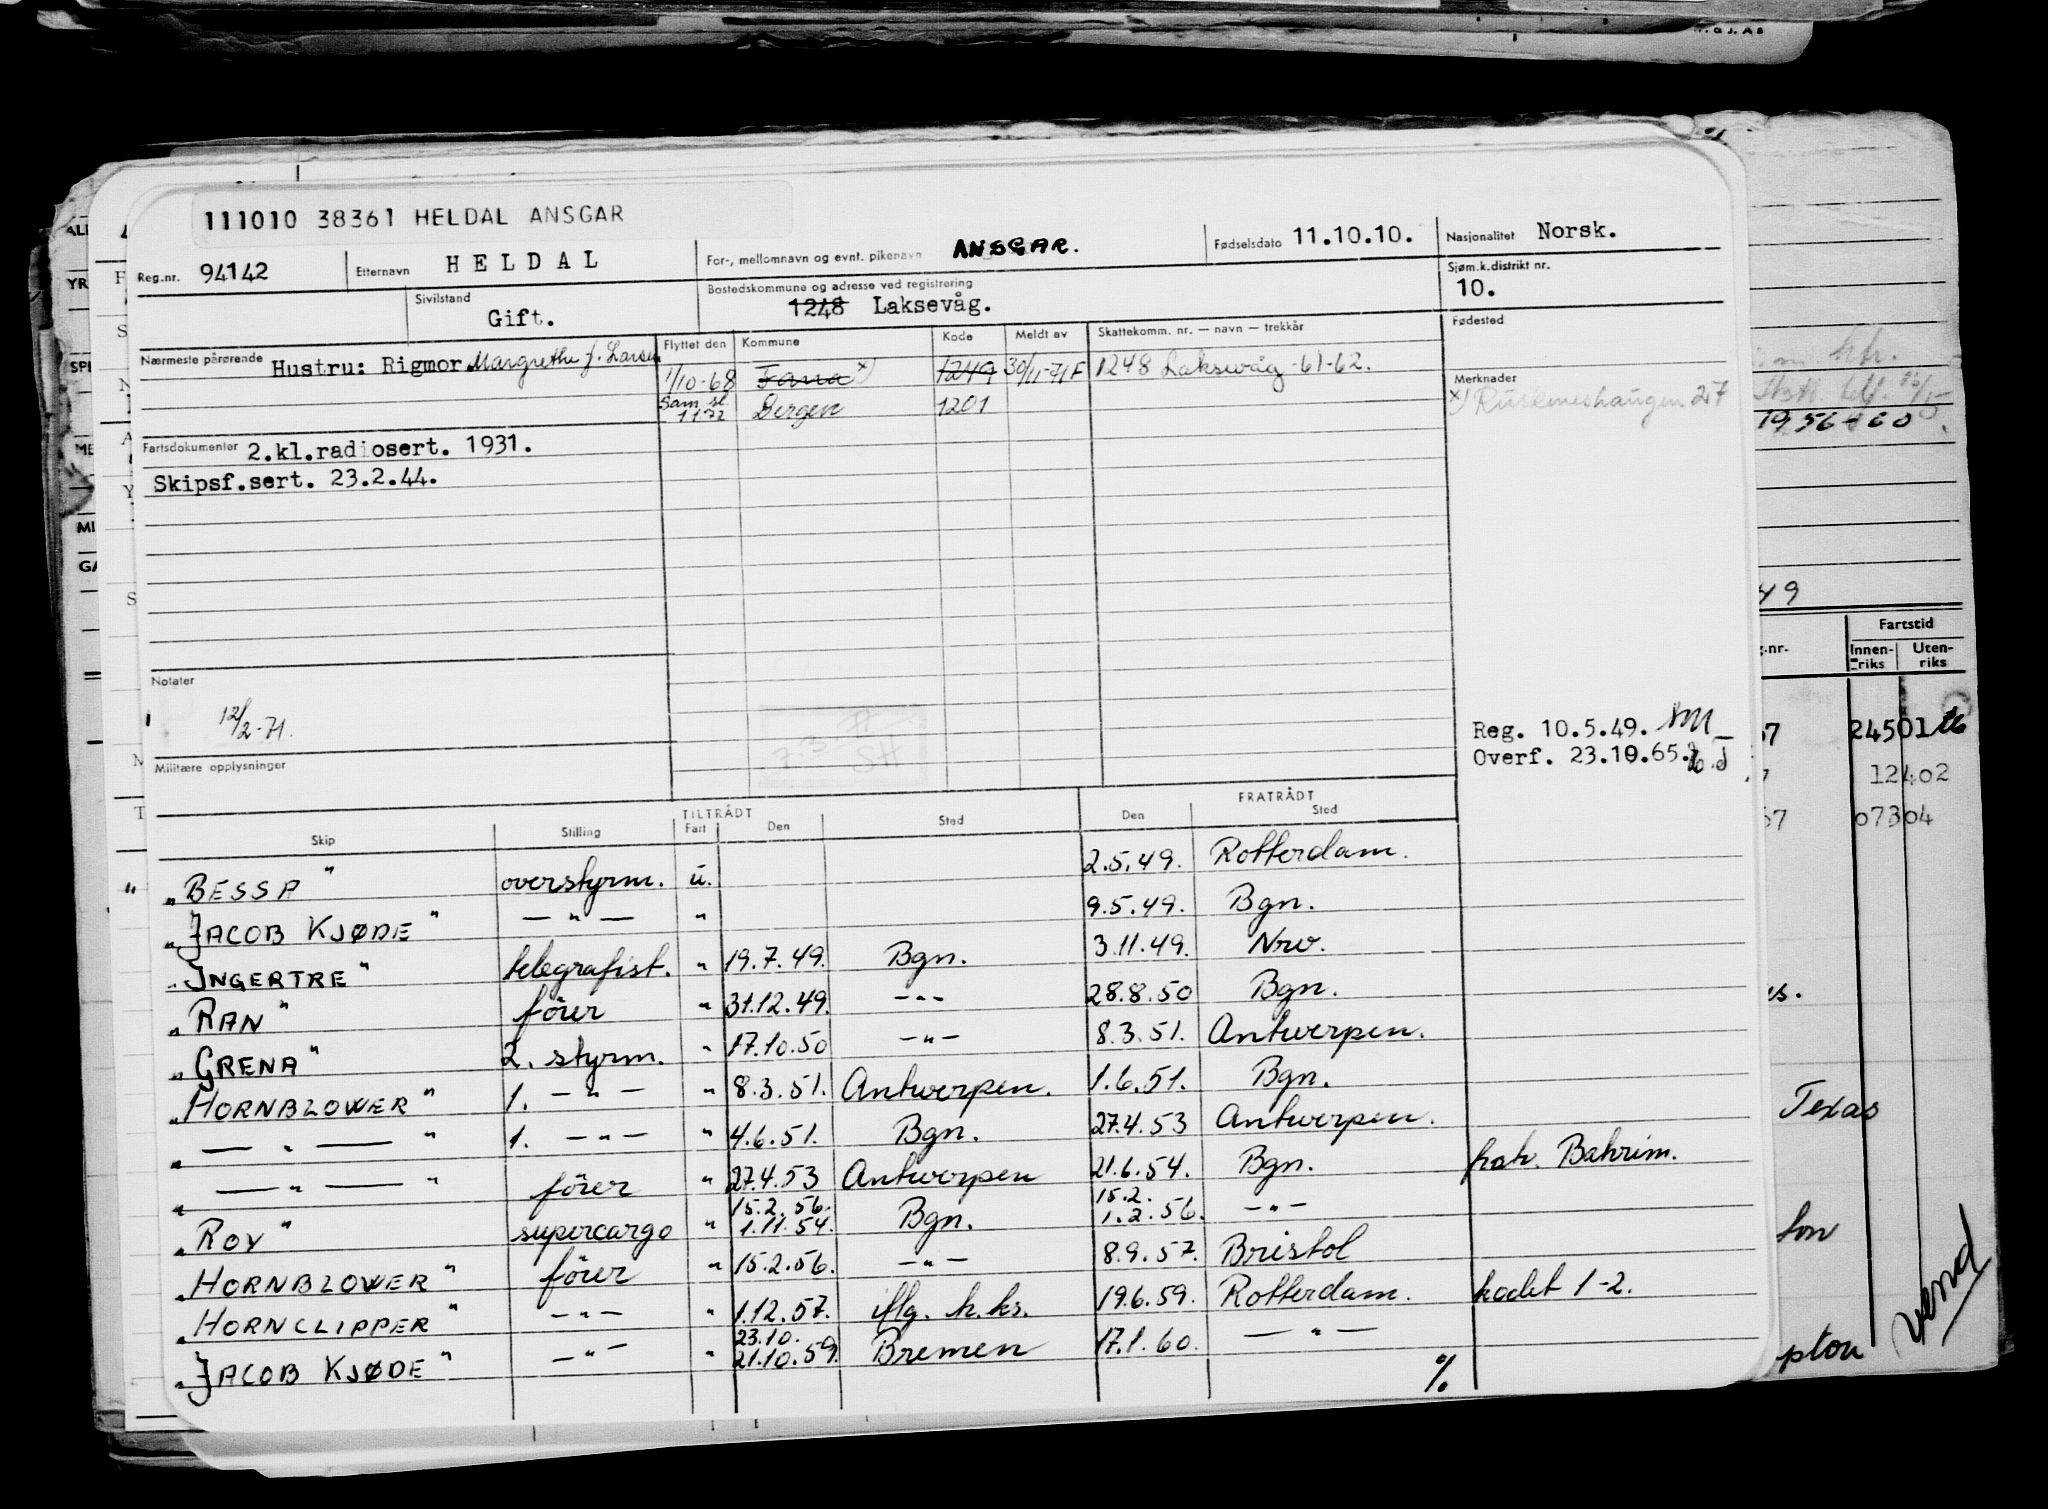 111010 38361 HELDAL ANSGAR
Reg.nr. 94142 Etternavn HELDAL For-, mellomnavn og evnt. pikenavn ANSGAR. Fødselsdato 11.10.10. Nasjonalitet Norsk.
Sivilstand Gift. Bostedskommune og adresse ved registrering 1248 Laksevåg. Sjøm.k.distrikt nr. 10.
Nærmeste pårørende Hustru: Rigmor Margrethe f. Larsen Flyttet den Kommune Kode Meldt av Skattekomm. nr. — navn — trekkår Fødested
1/10-68 Fana x) 1249 30/11-71F 1248 Laksevåg -61-62. Merknader
Sam. sl. 1172 Bergen 1201 x) Ruskeneshaugen 27
Fartsdokumenter 2.kl.radiosert. 1931.
Skipsf.sert. 23.2.44.
Notater
12/2-71.
Reg. 10.5.49.
Overf. 23.10.65.
Militære opplysninger
TILTRÅDT FRATRÅDT
Skip Stilling Fart Den Sted Den Sted
" BESSA " overstyrm. u. 2.5.49. Rotterdam.
" JACOB KJØDE " — " — " 9.5.49. Bgn.
" INGERTRE " telegrafist. " 19.7.49. Bgn. 3.11.49. Nrv.
" RAN " förer " 31.12.49. — " — 28.8.50 Bgn.
" GRENA " 2. styrm. " 17.10.50 — " — 8.3.51. Antwerpen.
" HORNBLOWER " 1. — " — " 8.3.51. Antwerpen. 1.6.51. Bgn.
" — " — " 1. — " — " 4.6.51. Bgn. 27.4.53 Antwerpen.
" — " — " förer " 27.4.53 Antwerpen 21.6.54. Bgn. Bahrim.
" ROY " supercargo " 15.2.56. 1.11.54. Bgn. 15.2. 1.2.56. — " —
" HORNBLOWER " förer " 15.2.56. — " — 8.9.57. Bristol
" HORNCLIPPER " — " — " 1.12.57. iflg. h.ks. 19.6.59. Rotterdam. kodet 1-2.
" JACOB KJØDE " — " — " 23.10. 21.10.59. Bremen 17.1.60. — " —
%
1956-60
49
Fartstid
g.nr. Innen-riks Uten-riks
67 24501
12402
67 07304
Texas
ton
pton
vend